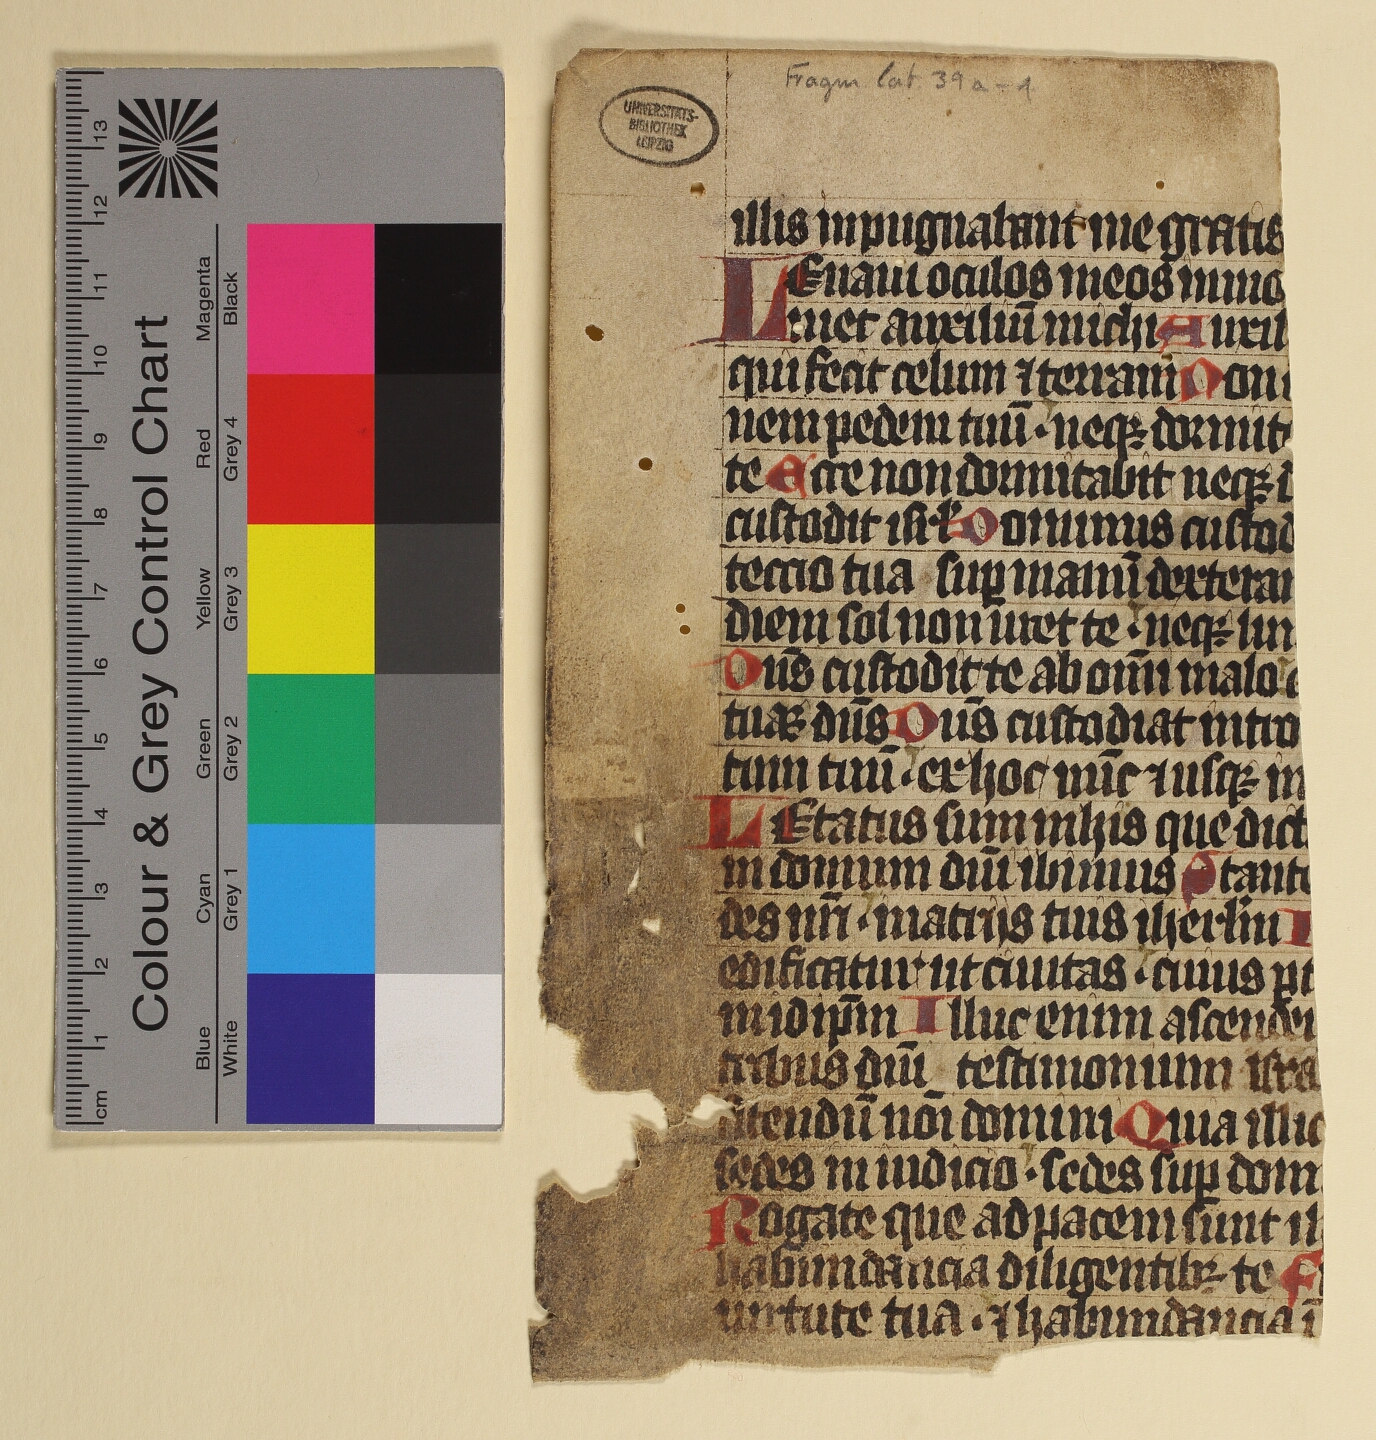 Colour & Grey Control Chart
Magenta Black
Red Grey 4
Yellow Grey 3
Green Grey 2
Cyan Grey 1
Blue White
cm 1 2 3 4 5 6 7 8 9 10 11 12 13
Fragm lat. 39a-1
UNIVERSITÄTS-
BIBLIOTHEK
LEIPZIG
illis inpugnabant me gratis
LEuaui oculos meos in mo
ueniet auxiliū michi Auxil
qui fecit celum ⁊ terram Non
nem pedem tuū · neqꝫ dormit
te Ecce non dormitabit neqꝫ d
custodit isrl' Dominus custod
tectio tua sup manū dexteram
diem sol non uret te · neqꝫ lun
Dn̄s custodit te ab om̄i malo c
tuā dn̄s Dn̄s custodiat intro
tum tuū · ex hoc nūc ⁊ usqꝫ in
LEtatus sum in his que dict
in domum dn̄i ibimus Stante
des nr̄i · in atrijs tuis iherl'm I
edificatur ut ciuitas · cuius pt
in idip̄m Illuc enim ascender
tribus dn̄i testimonium isra
fitendū nōi domini Quia illic
sedes in iudicio · sedes sup dom
Rogate que ad pacem sunt il
habundancia diligentibꝫ te F
uirtute tua · ⁊ habundancia ī